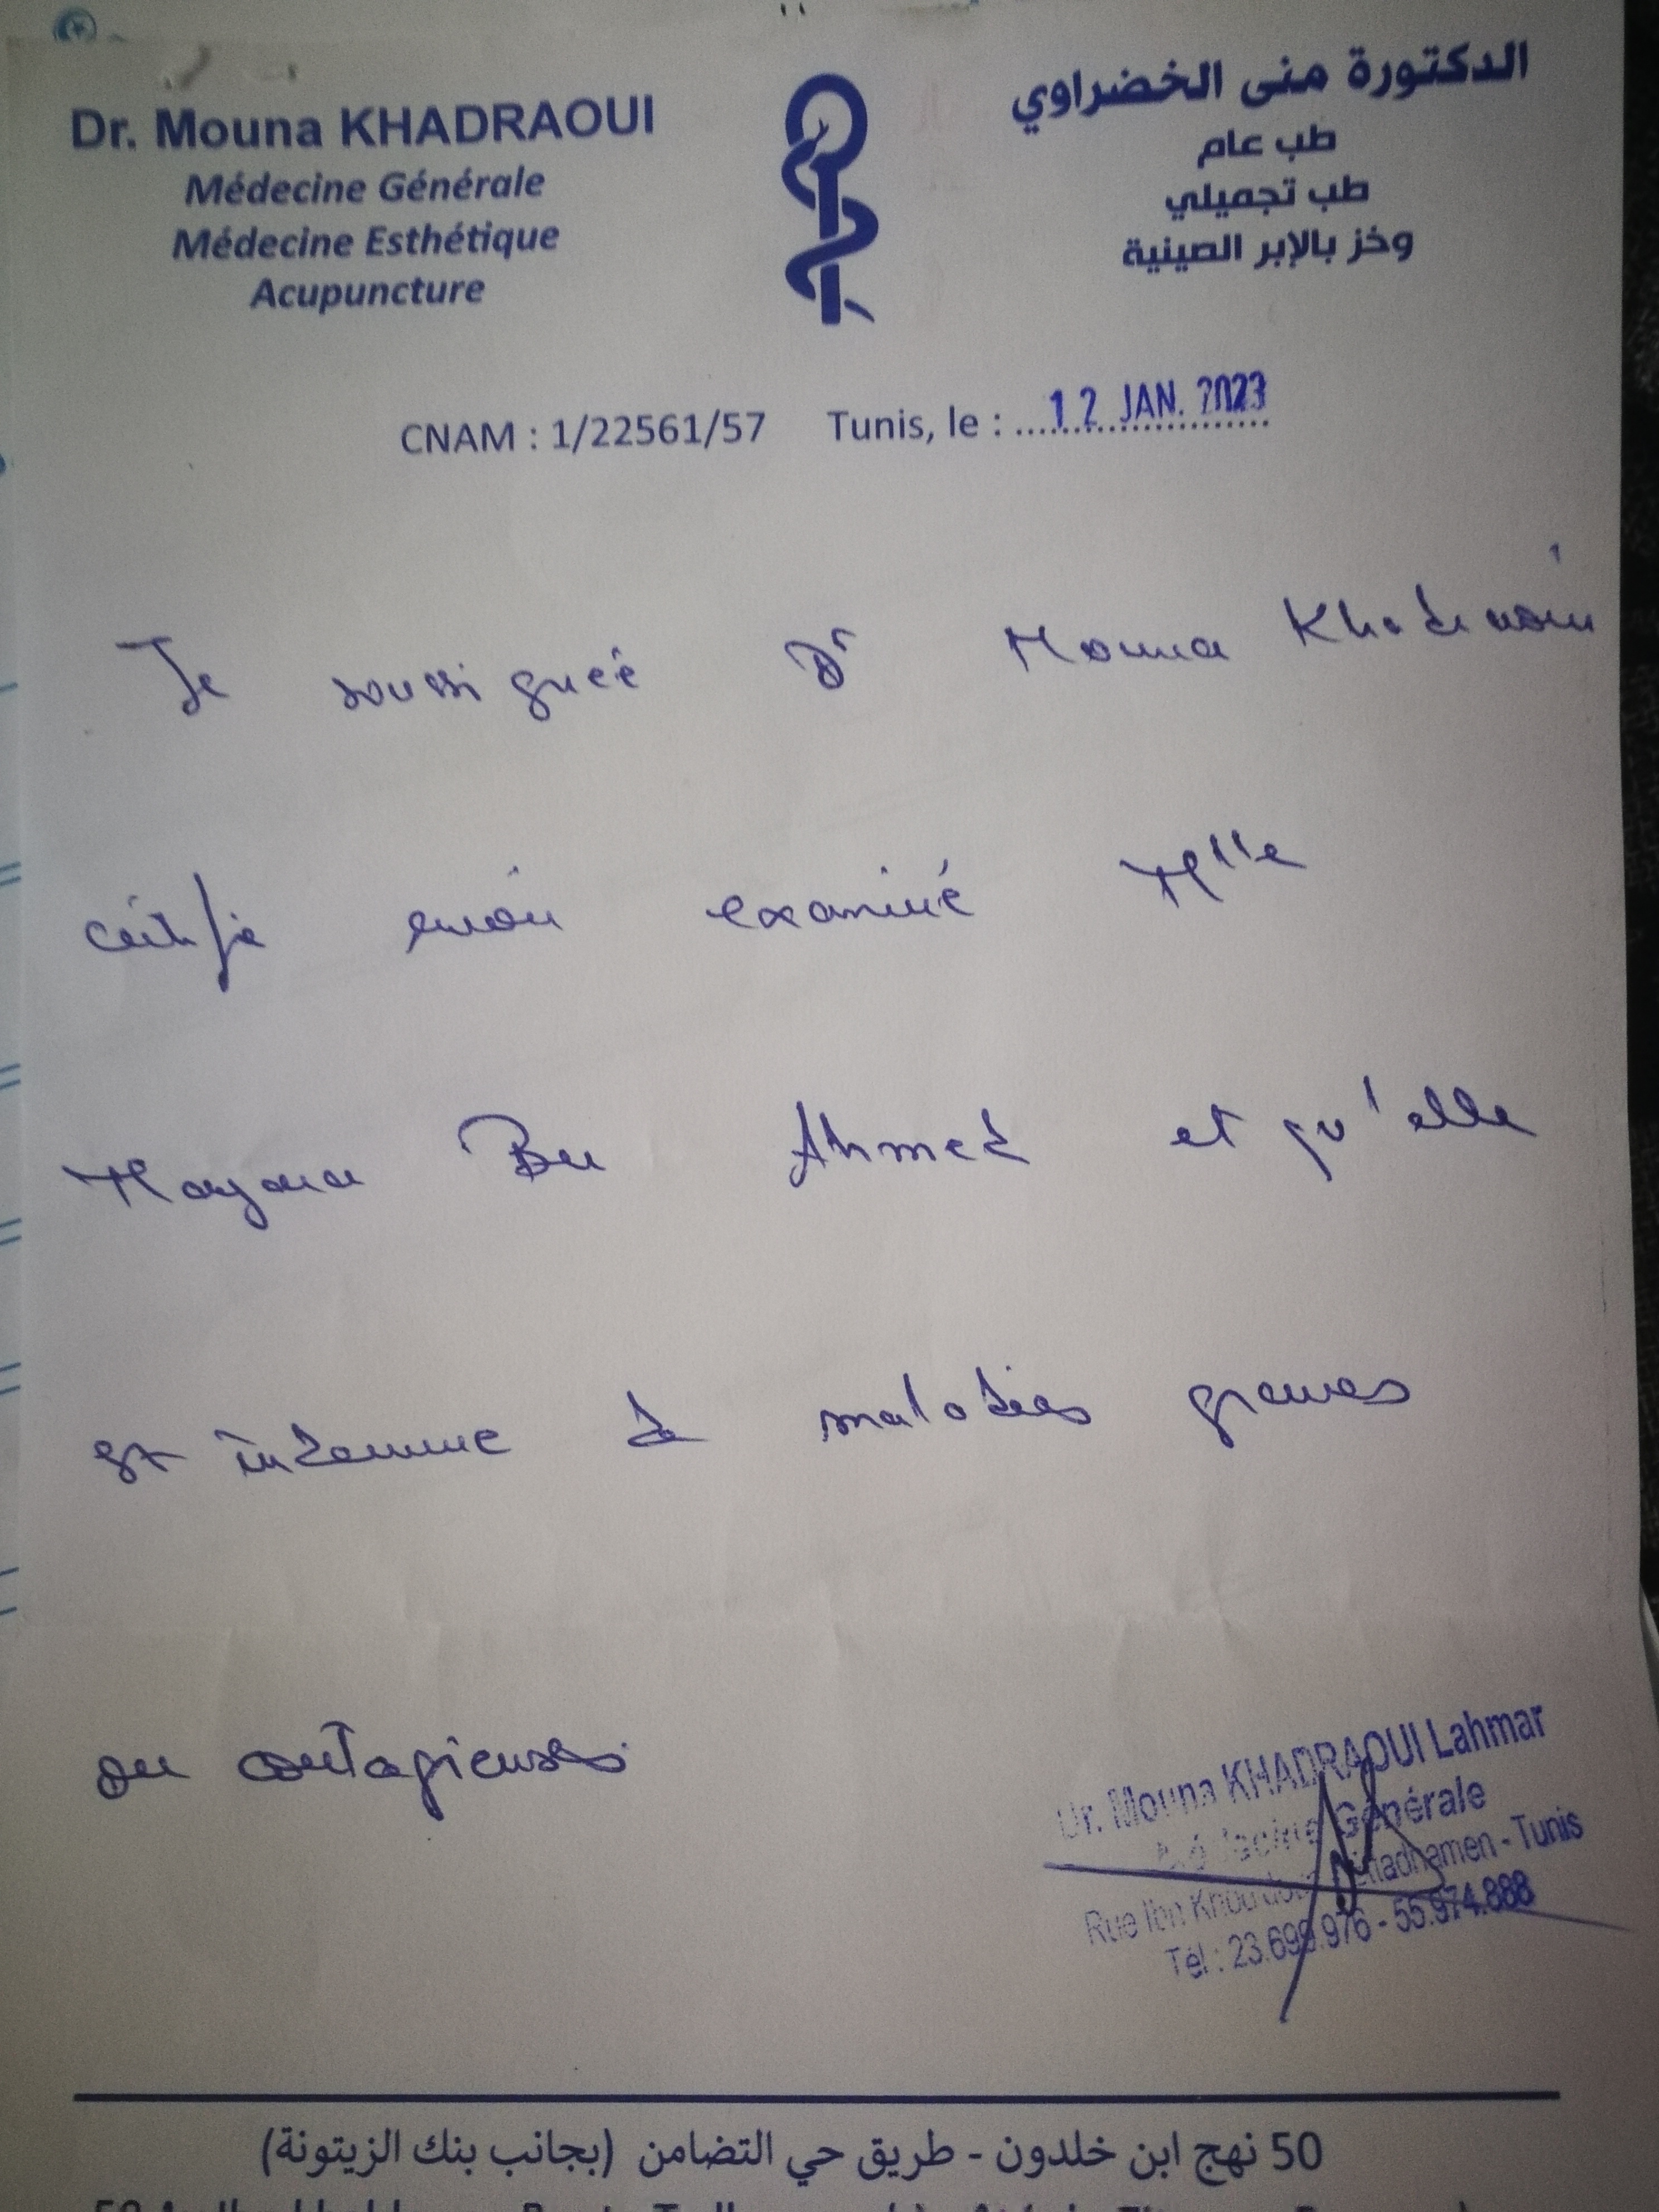 Dr. Mouna KHADRAOUI
Médecine Générale
Médecine Esthétique
Acupuncture
الدكتورة منى الخضراوي
طب عام
طب تجميلي
وخز بالإبر الصينية
CNAM : 1/22561/57 Tunis, le : 12 JAN. 2023
Je soussignée Dr Mouna Khadraoui
certifie avoir examiné Mlle
Marjana Ben Ahmed et qu'elle
est indemne de maladies graves
ou contagieuses.
Dr. Mouna KHADRAOUI Lahmar
Médecine Générale
Rue Ibn Khouldoun Ettadhamen - Tunis
Tél : 23.699.976 - 55.974.888
50 نهج ابن خلدون - طريق حي التضامن (بجانب بنك الزيتونة)